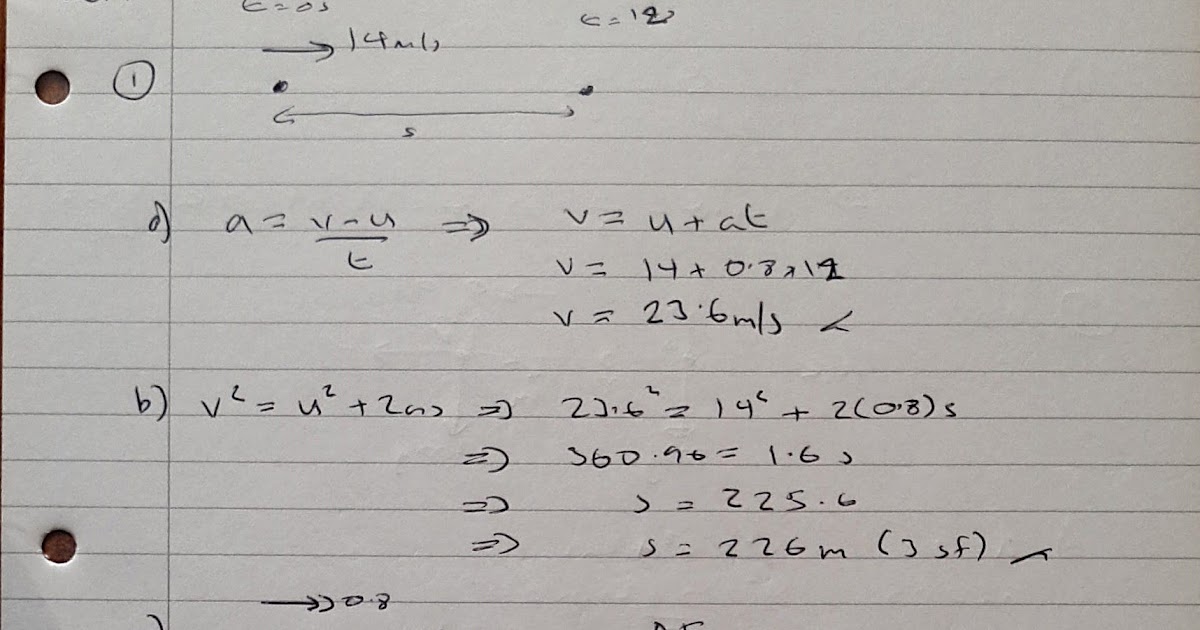 t = 0s t = 12
14m/s
①
s
a) a = v - u / t ⇒ v = u + at
v = 14 + 0.8 x 12
v = 23.6m/s
b) v² = u² + 2as ⇒ 23.6² = 14² + 2(0.8)s
⇒ 360.96 = 1.6 s
⇒ s = 225.6
⇒ s = 226m (3 sf)
0.8